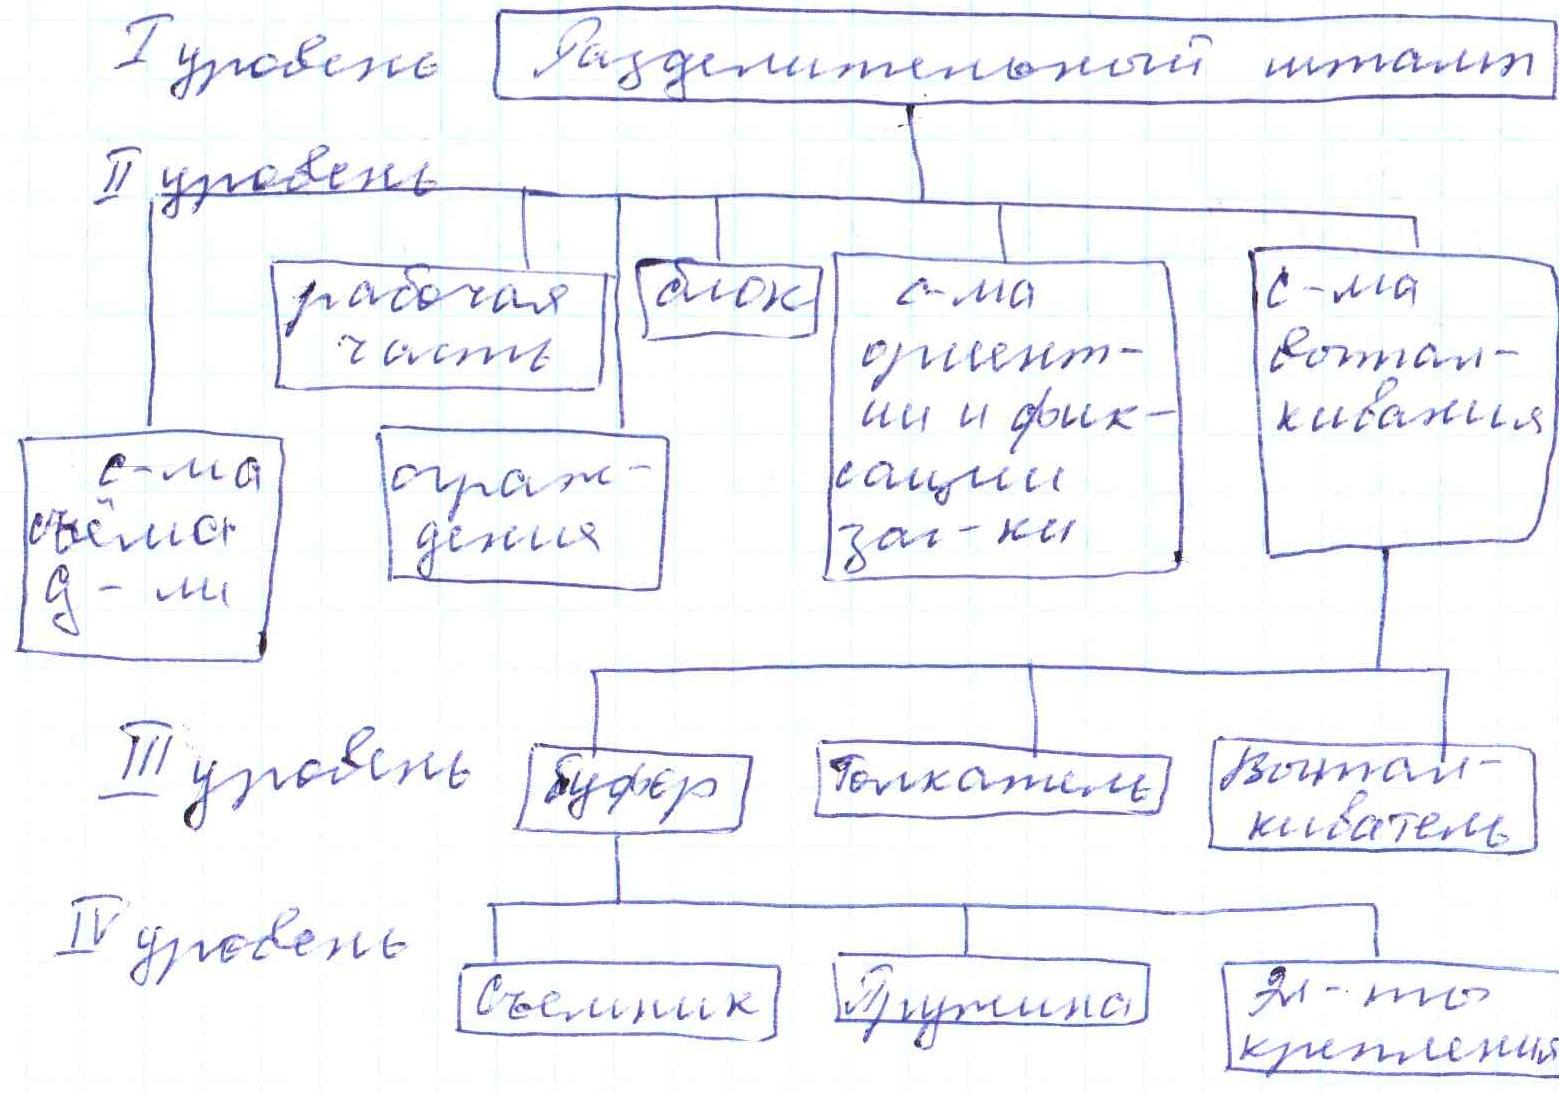 I уровень Разделительный штамп
II уровень
рабочая
часть
блок
с-ма
ориент-
ии и фик-
сации
заг-ки
с-ма
вытал-
кивания
с-ма
съёма
д-ли
ограж-
дения
III уровень Буфер Толкатель Вытал-
киватель
IV уровень
Съемник Пружина Эл-ты
крепления